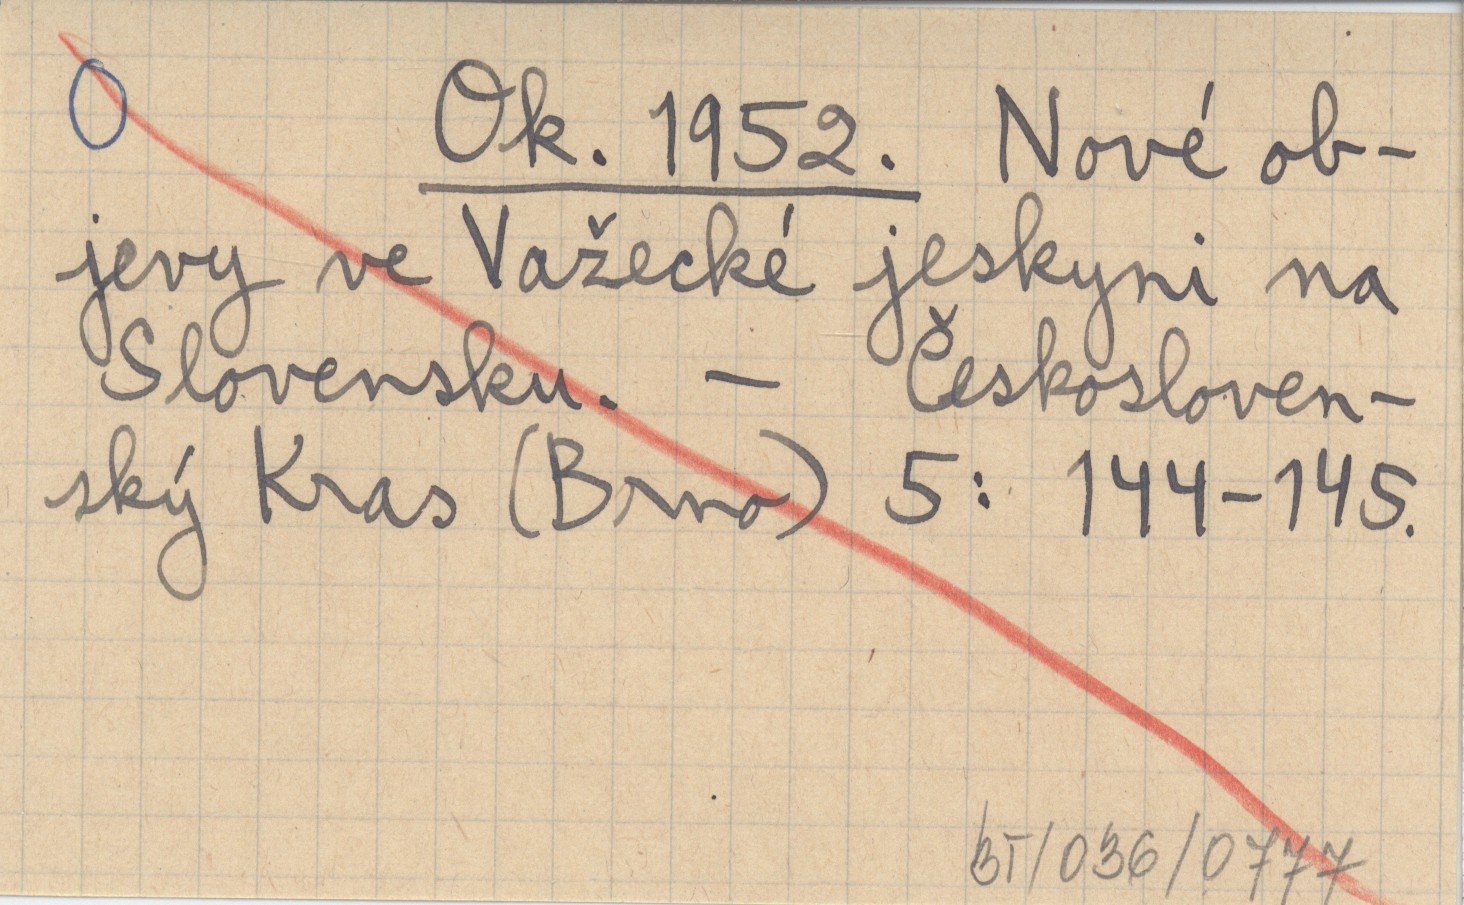 O
Ok. 1952. Nové ob-
jevy ve Važecké jeskyni na
Slovensku. – Českosloven-
ský Kras (Brno) 5: 144-145.
BT/036/0777